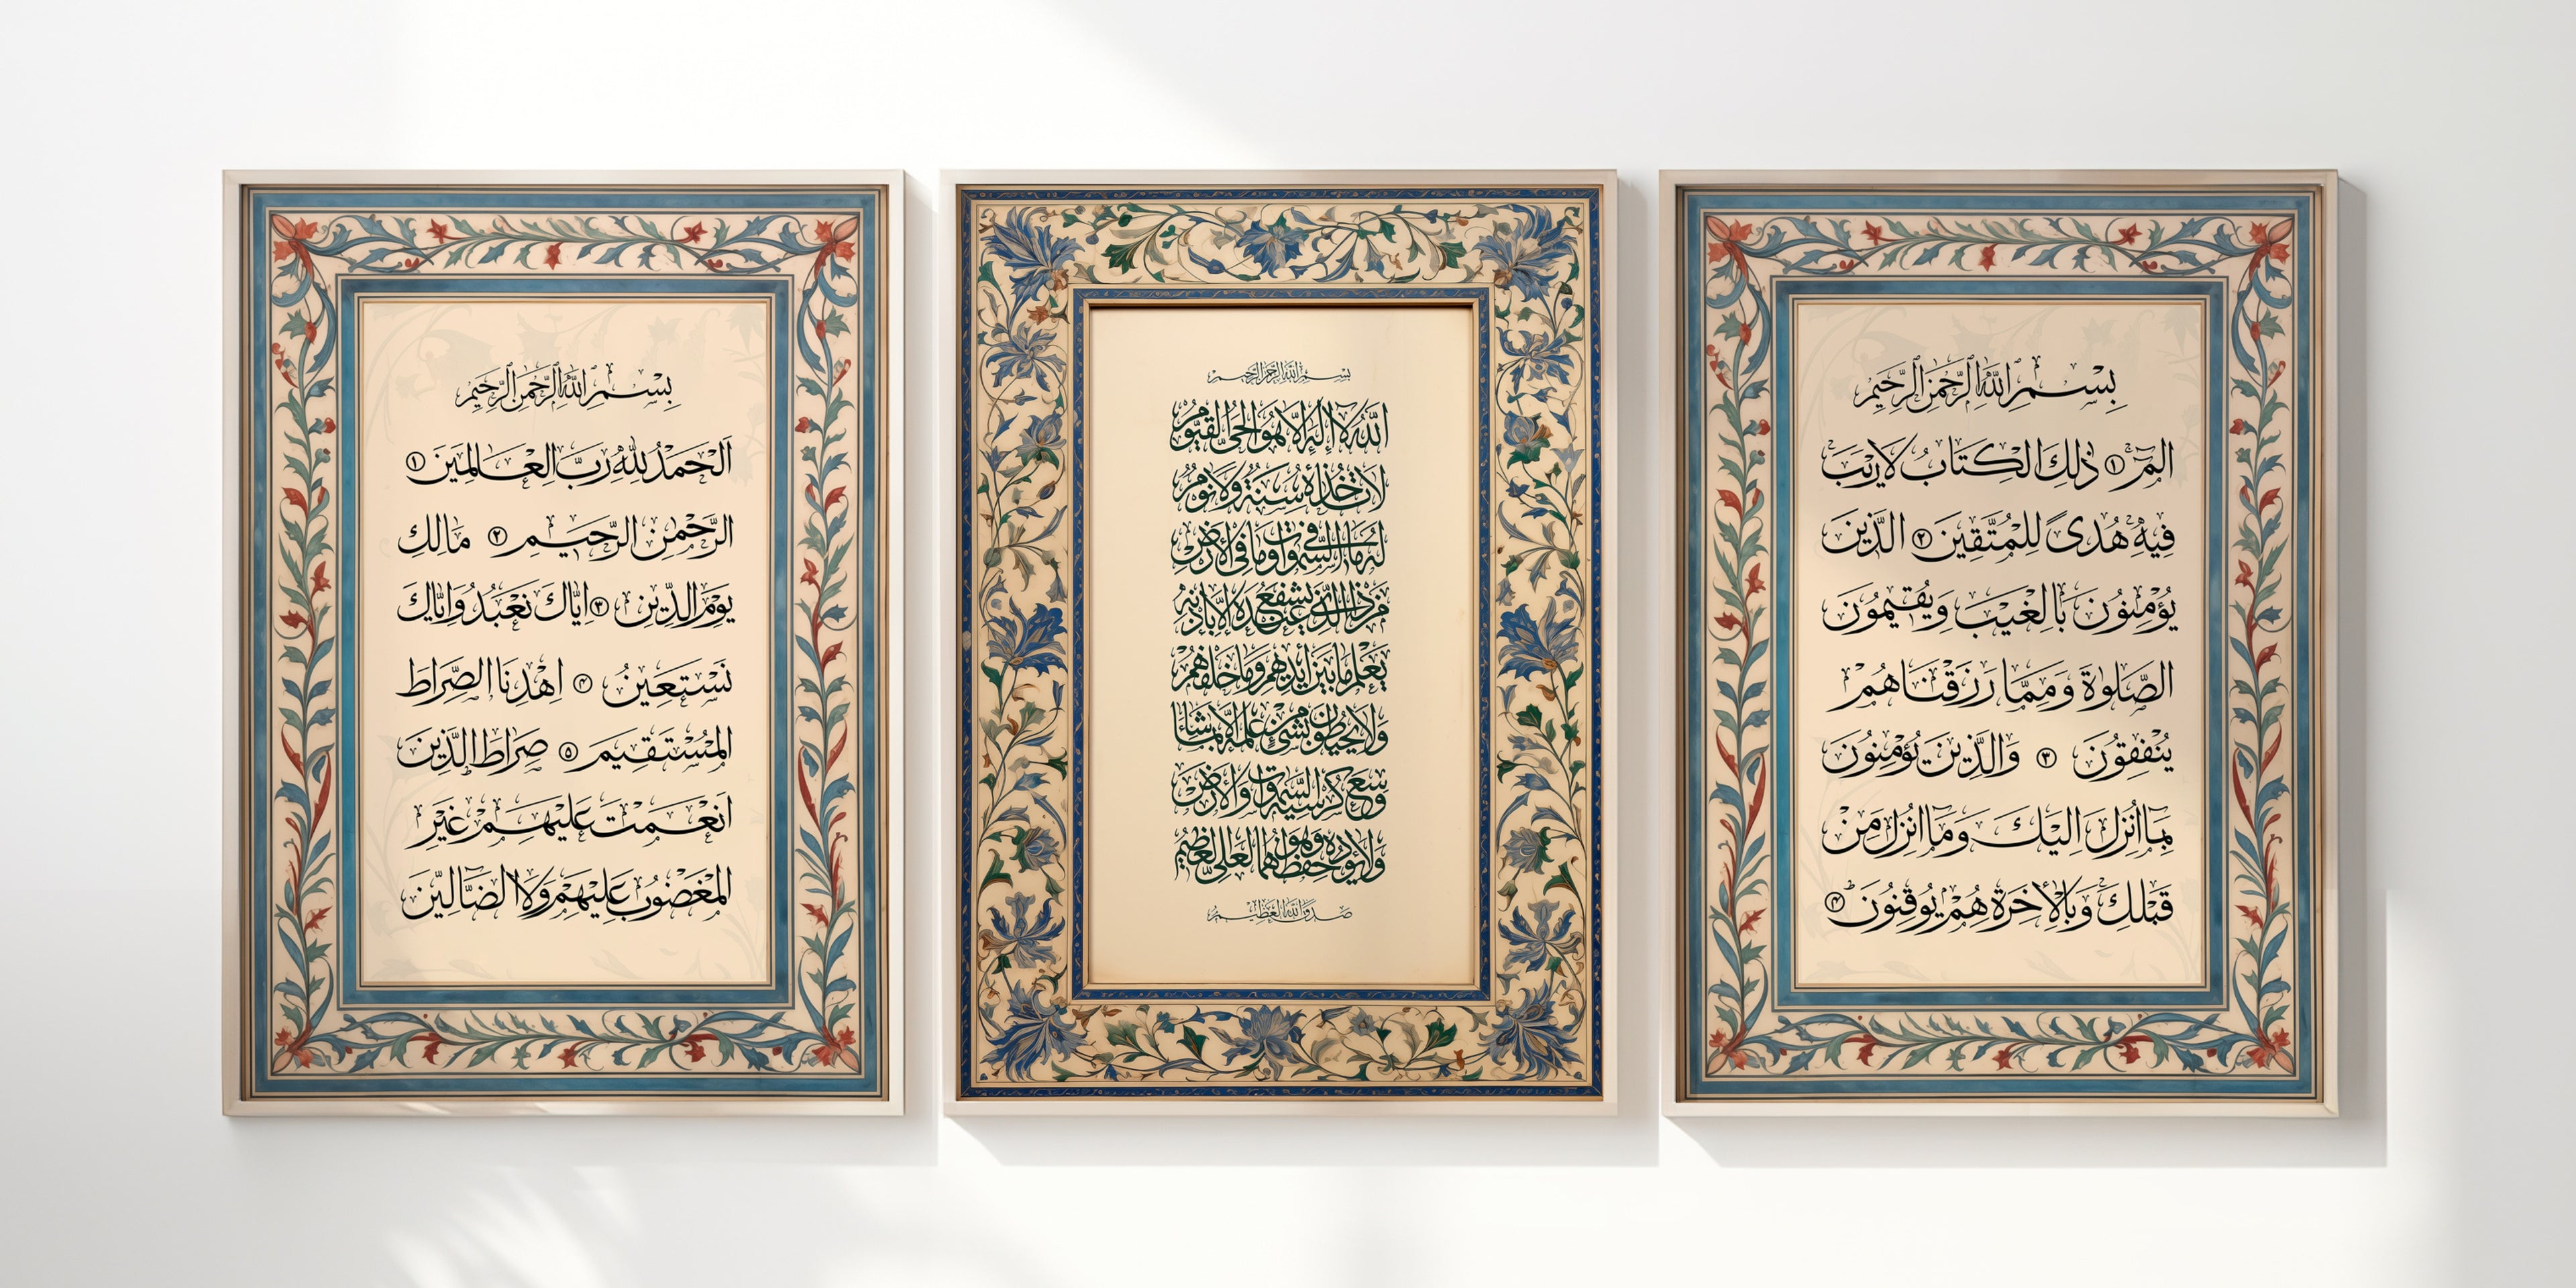 بِسْمِ اللهِ الرَّحْمٰنِ الرَّحِيمِ
اَلْحَمْدُ لِلّٰهِ رَبِّ الْعَالَمِينَ ١
الرَّحْمٰنِ الرَّحِيمِ ٢ مَالِكِ
يَوْمِ الدِّينِ ٣ اِيَّاكَ نَعْبُدُ وَاِيَّاكَ
نَسْتَعِينُ ٤ اِهْدِنَا الصِّرَاطَ
الْمُسْتَقِيمَ ٥ صِرَاطَ الَّذِينَ
اَنْعَمْتَ عَلَيْهِمْ غَيْرِ
الْمَغْضُوبِ عَلَيْهِمْ وَلَا الضَّالِّينَ
بسم الله الرحمن الرحيم
اللّٰهُ لَا اِلٰهَ اِلَّا هُوَ الْحَيُّ الْقَيُّومُ
لَا تَأْخُذُهُ سِنَةٌ وَلَا نَوْمٌ
لَهُ مَا فِي السَّمٰوَاتِ وَمَا فِي الْاَرْضِ
مَنْ ذَا الَّذِي يَشْفَعُ عِنْدَهُ اِلَّا بِاِذْنِهِ
يَعْلَمُ مَا بَيْنَ اَيْدِيهِمْ وَمَا خَلْفَهُمْ
وَلَا يُحِيطُونَ بِشَيْءٍ مِنْ عِلْمِهِ اِلَّا بِمَا شَاءَ
وَسِعَ كُرْسِيُّهُ السَّمٰوَاتِ وَالْاَرْضَ
وَلَا يَؤُدُهُ حِفْظُهُمَا وَهُوَ الْعَلِيُّ الْعَظِيمُ
صدق الله العظيم
بِسْمِ اللهِ الرَّحْمٰنِ الرَّحِيمِ
الٓمٓ ١ ذٰلِكَ الْكِتَابُ لَا رَيْبَ
فِيهِ هُدًى لِلْمُتَّقِينَ ٢ الَّذِينَ
يُؤْمِنُونَ بِالْغَيْبِ وَيُقِيمُونَ
الصَّلٰوةَ وَمِمَّا رَزَقْنَاهُمْ
يُنْفِقُونَ ٣ وَالَّذِينَ يُؤْمِنُونَ
بِمَٓا اُنْزِلَ اِلَيْكَ وَمَٓا اُنْزِلَ مِنْ
قَبْلِكَ وَبِالْاٰخِرَةِ هُمْ يُوقِنُونَ ٤